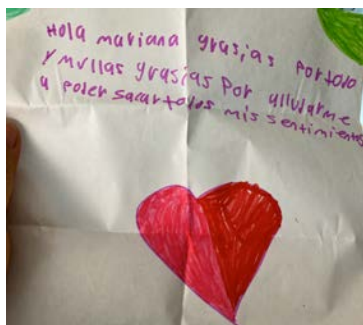 Hola mariana grasias por todo
y mullas grasias por allularme
a poder sacar todos mis sentimientos